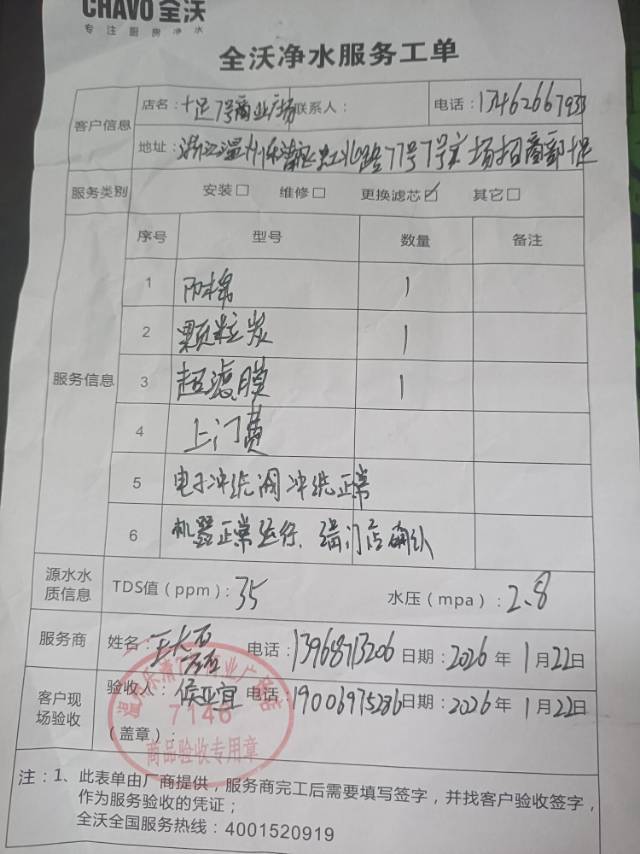 CHAVO 全沃
专注厨房净水
全沃净水服务工单
客户信息
店名：十足7号商业广场 联系人： 电话：13462667933
地址：浙江温州乐清 虹北路77号7号广场招商部十足
服务类别 安装□ 维修□ 更换滤芯☑ 其它□
服务信息
序号 型号 数量 备注
1 PP棉 1
2 颗粒炭 1
3 超滤膜 1
4 上门费
5 电子冲洗阀冲洗正常
6 机器正常运行，请门店确认
源水水质信息 TDS值（ppm）：35 水压（mpa）：2.8
服务商 姓名：王大石 电话：13968713206 日期：2026年1月22日
客户现场验收 验收人：侯亚宜 电话：19006975286 日期：2026年1月22日
（盖章）：
7146
商品验收专用章
注：1、此表单由厂商提供，服务商完工后需要填写签字，并找客户验收签字，
作为服务验收的凭证；
全沃全国服务热线：4001520919